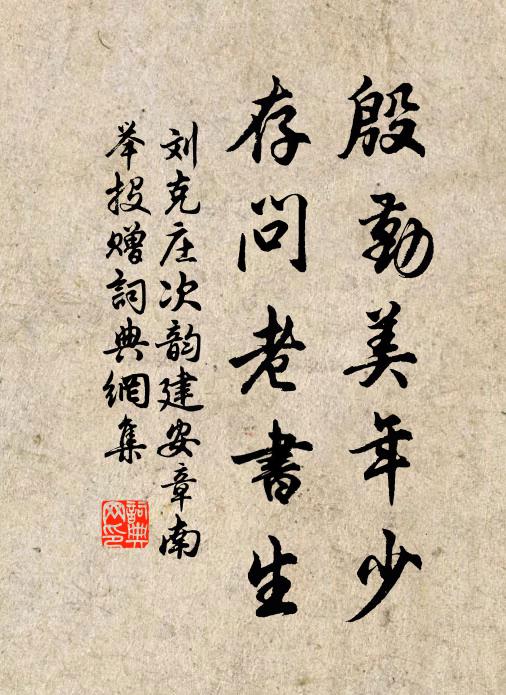 殷勤美年少
存问老書生
刘克庄次韵建安章南
举投赠詞典網集
詞典網印